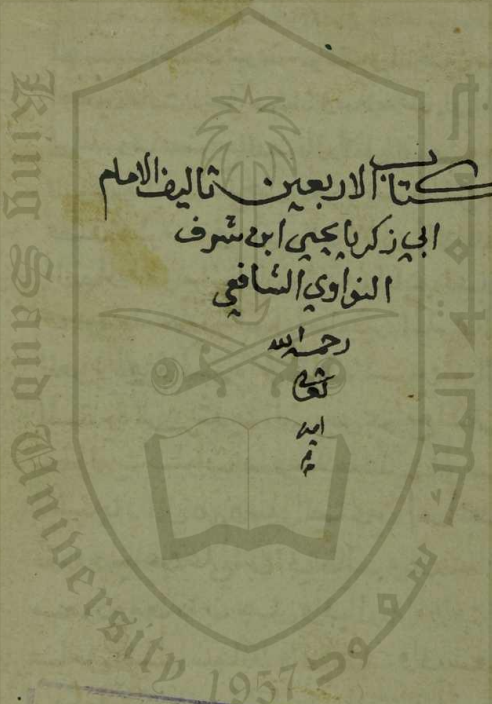 كتاب الاربعين تاليف الامام
ابي زكريا يحيى ابن شرف
النواوي الشافعي
رحمه الله
تعالى
امين
م
King Saud University
جامعة الملك سعود
1957